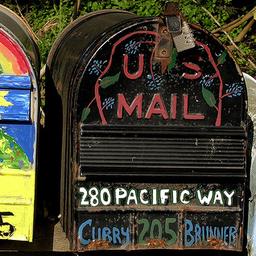 U S
MAIL
280 PACIFIC WAY
CURRY 205 BRUNNER
5